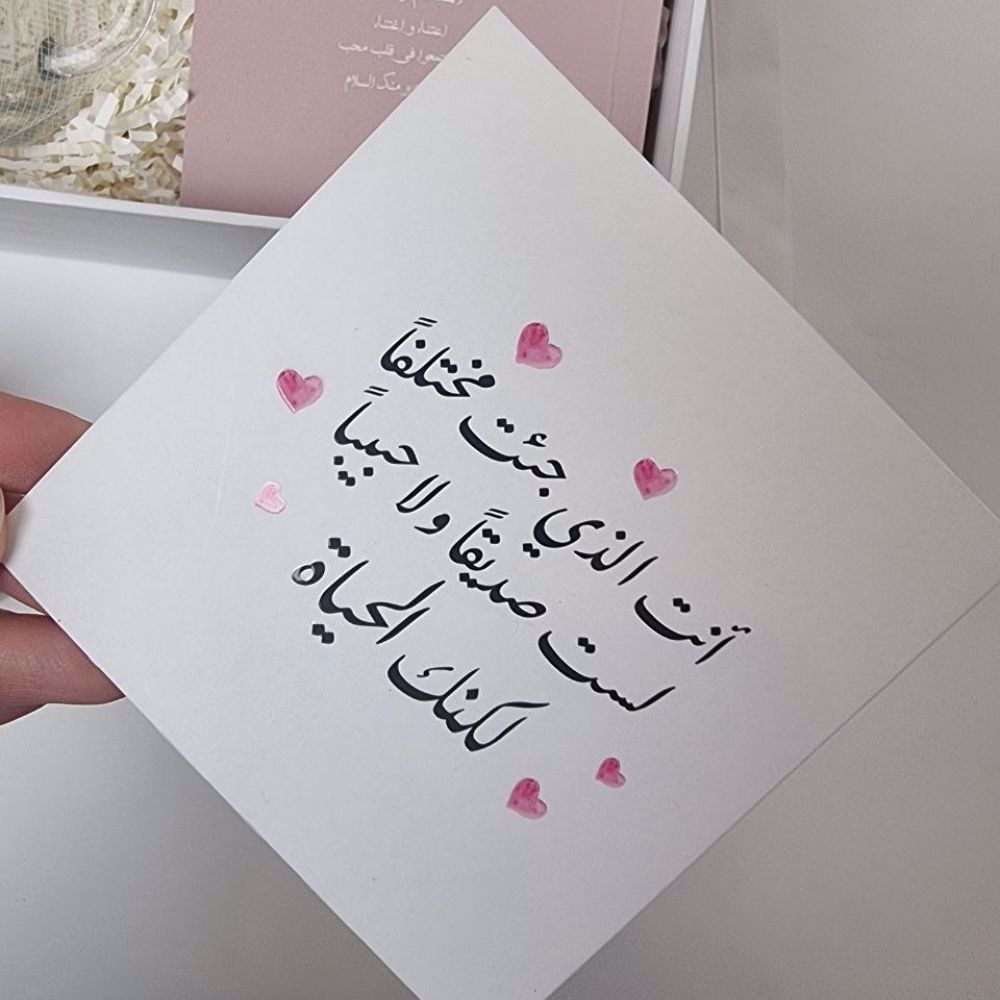 اعتناء و اغتناء
في قلب محب
و منك السلام
أنت الذي جئت مختلفاً
لست صديقاً ولا حبيباً
لكنك الحياة